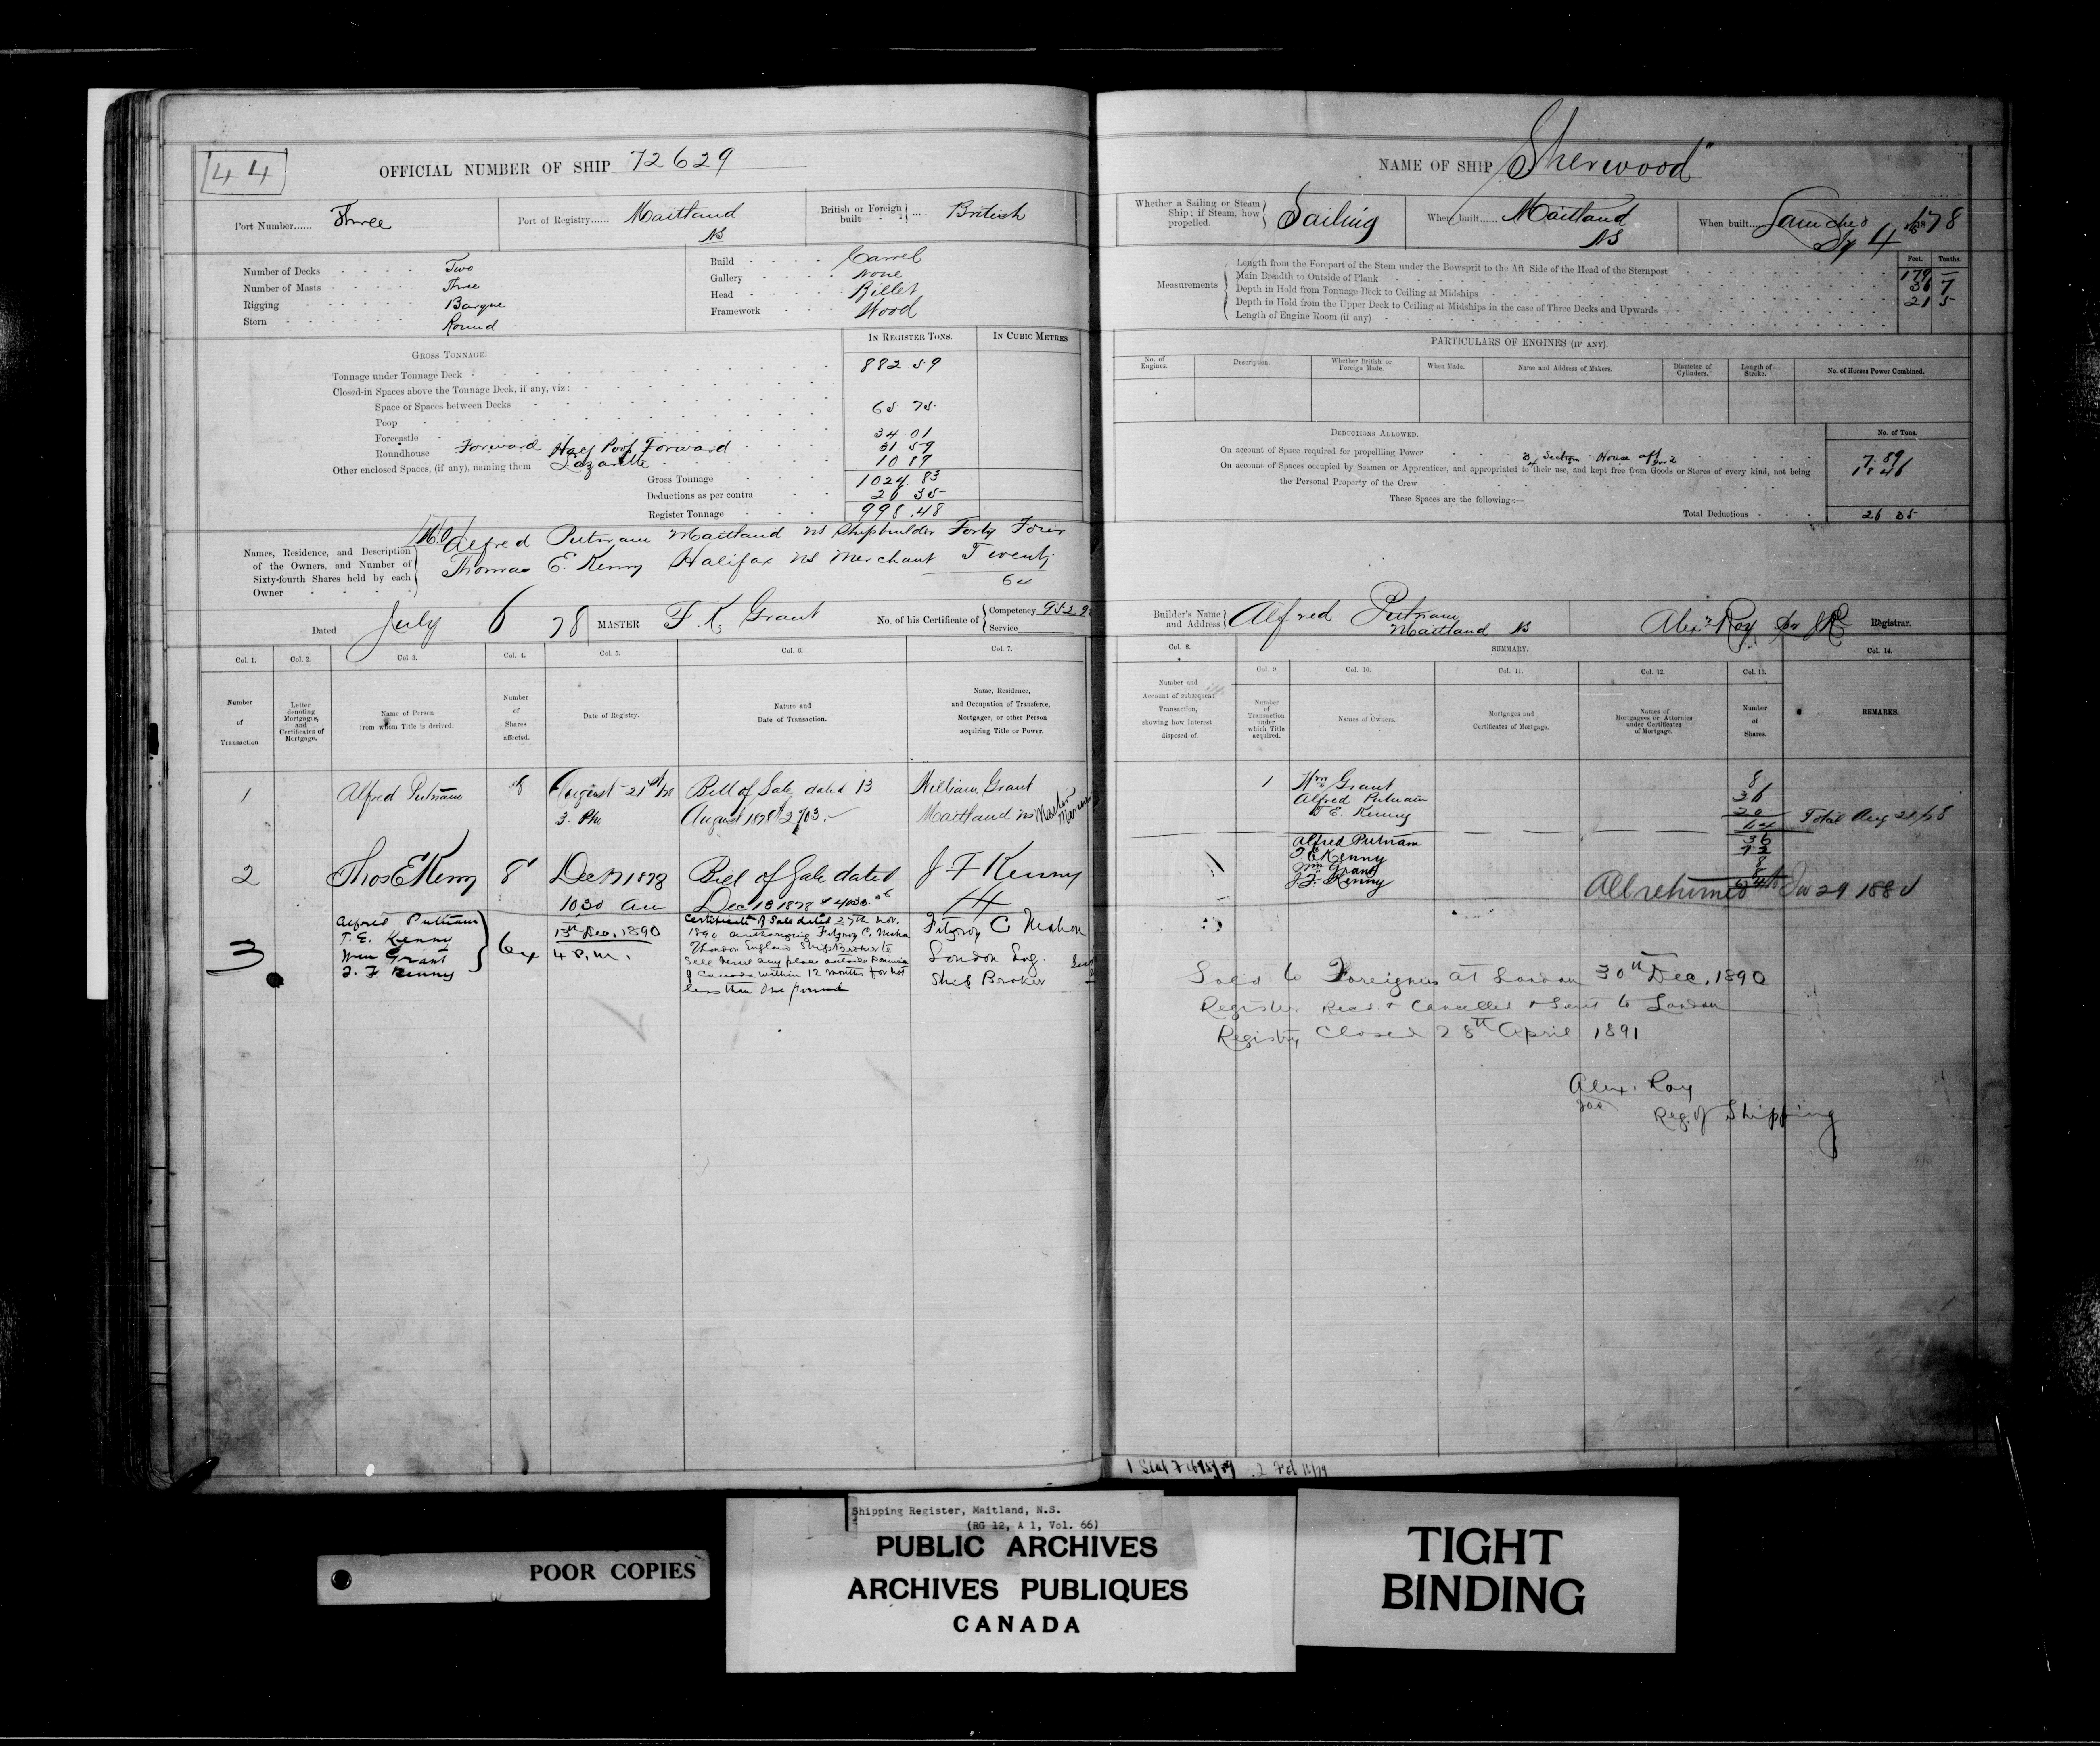 44
OFFICIAL NUMBER OF SHIP 72629
Port Number...... Three
Port of Registry...... Maitland NS
British or Foreign built .... British
Number of Decks Two
Number of Masts Three
Rigging Barque
Stern Round
Build Carvel
Gallery None
Head Billet
Framework Wood
IN REGISTER TONS. IN CUBIC METRES
GROSS TONNAGE.
Tonnage under Tonnage Deck 882.59
Closed-in Spaces above the Tonnage Deck, if any, viz:
Space or Spaces between Decks
Poop 65 75
Forecastle 34.01
Roundhouse Forward Half Poop Forward 31 59
Other enclosed Spaces, (if any), naming them Lazarette 10 89
Gross Tonnage 1024.83
Deductions as per contra 26 35
Register Tonnage 998.48
Names, Residence, and Description of the Owners, and Number of Sixty-fourth Shares held by each Owner
Alfred Putnam Maitland NS Shipbuilder Forty Four
Thomas E. Kenny Halifax NS Merchant Twenty
64
Dated July 6 78 MASTER F. K. Grant No. of his Certificate of Competency
Service
Col. 1. Col. 2. Col 3. Col. 4. Col. 5. Col. 6. Col. 7.
Number of Transaction
Letter denoting Mortgages, and Certificates of Mortgage.
Name of Person from whom Title is derived.
Number of Shares affected.
Date of Registry.
Nature and Date of Transaction.
Name, Residence, and Occupation of Transferee, Mortgagee, or other Person acquiring Title or Power.
1 Alfred Putnam 8 August 21st Bill of Sale dated 13 William Grant
3. PM August 1878 Maitland NS Master Mariner
2 Thos E Kenny 8 Dec 1878 Bill of Sale dated J F Kenny
1030 am Dec 13 1878
3
Alfred Putnam
T. E. Kenny
Wm Grant
J. F. Kenny
64
13th Dec, 1890
4 P.m.
Certificate of Sale dated 27th Nov.
1890 authorizing Fitzroy C. Mahon
London England Ship Broker to
sell vessel any place outside Dominion
of Canada within 12 months for not
less than one pound
Fitzroy C Mahon
London Eng.
Ship Broker
NAME OF SHIP "Sherwood"
Whether a Sailing or Steam Ship; if Steam, how propelled. Sailing
Where built...... Maitland NS
When built.... Launched 4 78
Measurements
Feet. Tenths.
Length from the Forepart of the Stem under the Bowsprit to the Aft Side of the Head of the Sternpost 179 –
Main Breadth to Outside of Plank 36 7
Depth in Hold from Tonnage Deck to Ceiling at Midships 21 5
Depth in Hold from the Upper Deck to Ceiling at Midships in the case of Three Decks and Upwards
Length of Engine Room (if any)
PARTICULARS OF ENGINES (IF ANY).
No. of Engines. Description. Whether British or Foreign Made. When Made. Name and Address of Makers. Diameter of Cylinders. Length of Stroke. No. of Horses Power Combined.
DEDUCTIONS ALLOWED. No. of Tons.
On account of Space required for propelling Power
Section House aft 7.89
On account of Spaces occupied by Seamen or Apprentices, and appropriated to their use, and kept free from Goods or Stores of every kind, not being 18 46
the Personal Property of the Crew
These Spaces are the following:—
Total Deductions 26 35
Builder's Name and Address Alfred Putnam Maitland NS
Alexr Roy Registrar.
Col. 8. SUMMARY. Col. 14.
Col. 9. Col. 10. Col. 11. Col. 12. Col. 13.
Number and Account of subsequent Transaction, showing how Interest disposed of.
Number of Transaction under which Title acquired.
Names of Owners.
Mortgages and Certificates of Mortgage.
Names of Mortgagees or Attornies under Certificates of Mortgage.
Number of Shares.
REMARKS.
1 Wm Grant 8
Alfred Putnam 36
T E. Kenny 20
64 Total Aug 21/78
Alfred Putnam 36
T E Kenny 12
Wm Grant 8
J. F. Kenny 8
All returned
Sold to Foreigners at London 30th Dec, 1890
Register Recd & Cancelled & Sent to London
Registry Closed 28th April 1891
Alex. Roy
Reg. of Shipping
Shipping Register, Maitland, N.S.
(RG 12, A 1, Vol. 66)
POOR COPIES
PUBLIC ARCHIVES
ARCHIVES PUBLIQUES
CANADA
TIGHT
BINDING